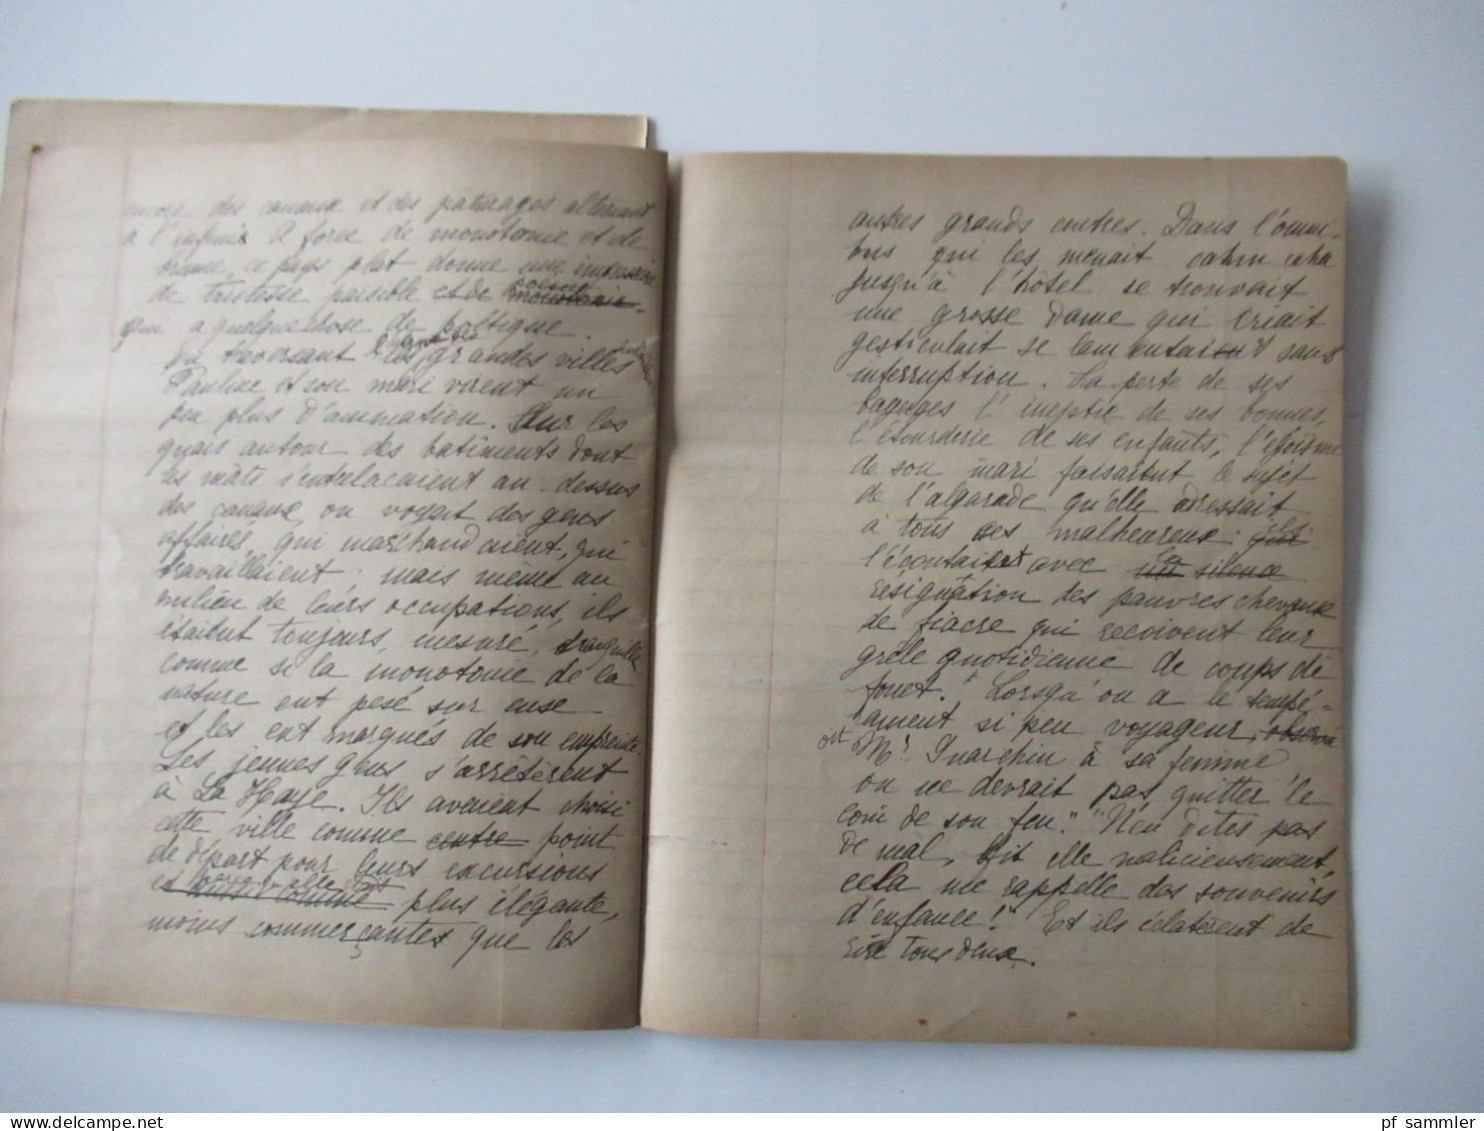 encore des canaux et des pâturages alternant
à l'infini. A force de monotonie et de
brume, ce pays plat donne une impression
de tristesse paisible et de monotonie
qui a quelque chose de poétique.
En traversant les grandes villes
Pauline et son mari virent un
peu plus d'animation. Sur les
quais autour des batiments dont
les mâts s'entrelacaient au-dessus
des canaux, on voyait des gens
affairés, qui marchandaient, qui
travaillaient; mais même au
milieu de leurs occupations, ils
étaient toujours, mesuré, tranquille
comme si la monotonie de la
nature eut pesé sur euse
et les eut marqués de son empreinte.
Les jeunes gens s'arrêtèrent
à La Haye. Ils avaient choisi
cette ville comme centre point
de départ pour leurs excursions
et comme plus élégante,
moins commerçantes que les
autres grands centres. Dans l'omni-
bus qui les menait cahin caha
jusqu'à l'hôtel se trouvait
une grosse dame qui criait
gesticulait se lamentait sans
interruption. La perte de ses
bagages l'ineptie de ses bonnes,
l'étourderie de ses enfants, l'égoïsme
de son mari faisaient le sujet
de l'algarade qu'elle adressait
à tous ces malheureux qui
l'écoutaient avec la silence
résignation des pauvres chevaux
de fiacre qui recoivent leur
grêle quotidienne de coups de
fouet. "Lorsqu'on a le tempé-
rament si peu voyageur, observa
dit Mr à sa femme
on ne devrait pas quitter le
coin de son feu." "N'en dites pas
de mal, dit elle malicieusement,
cela me rappelle des souvenirs
d'enfance!" Et ils éclatèrent de
rire tous deux.
pf sammler